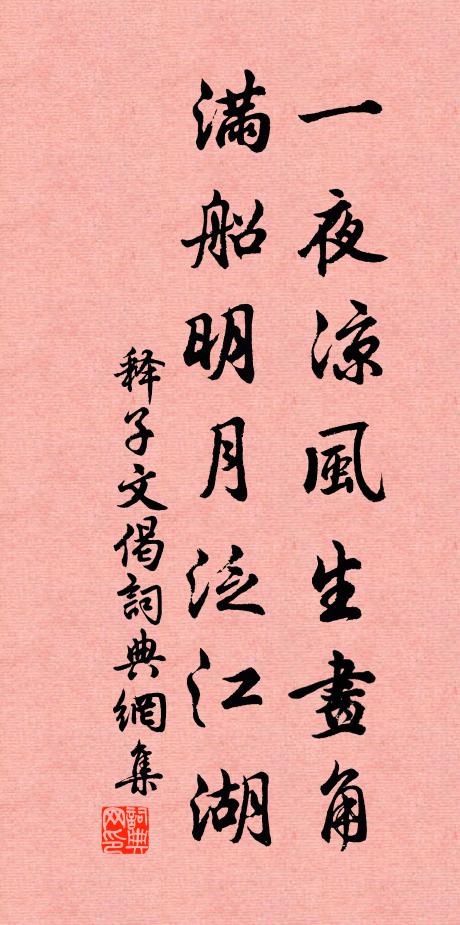 一夜凉風生畫角
滿船明月泛江湖
释子文偈詞典網集
詞典网印